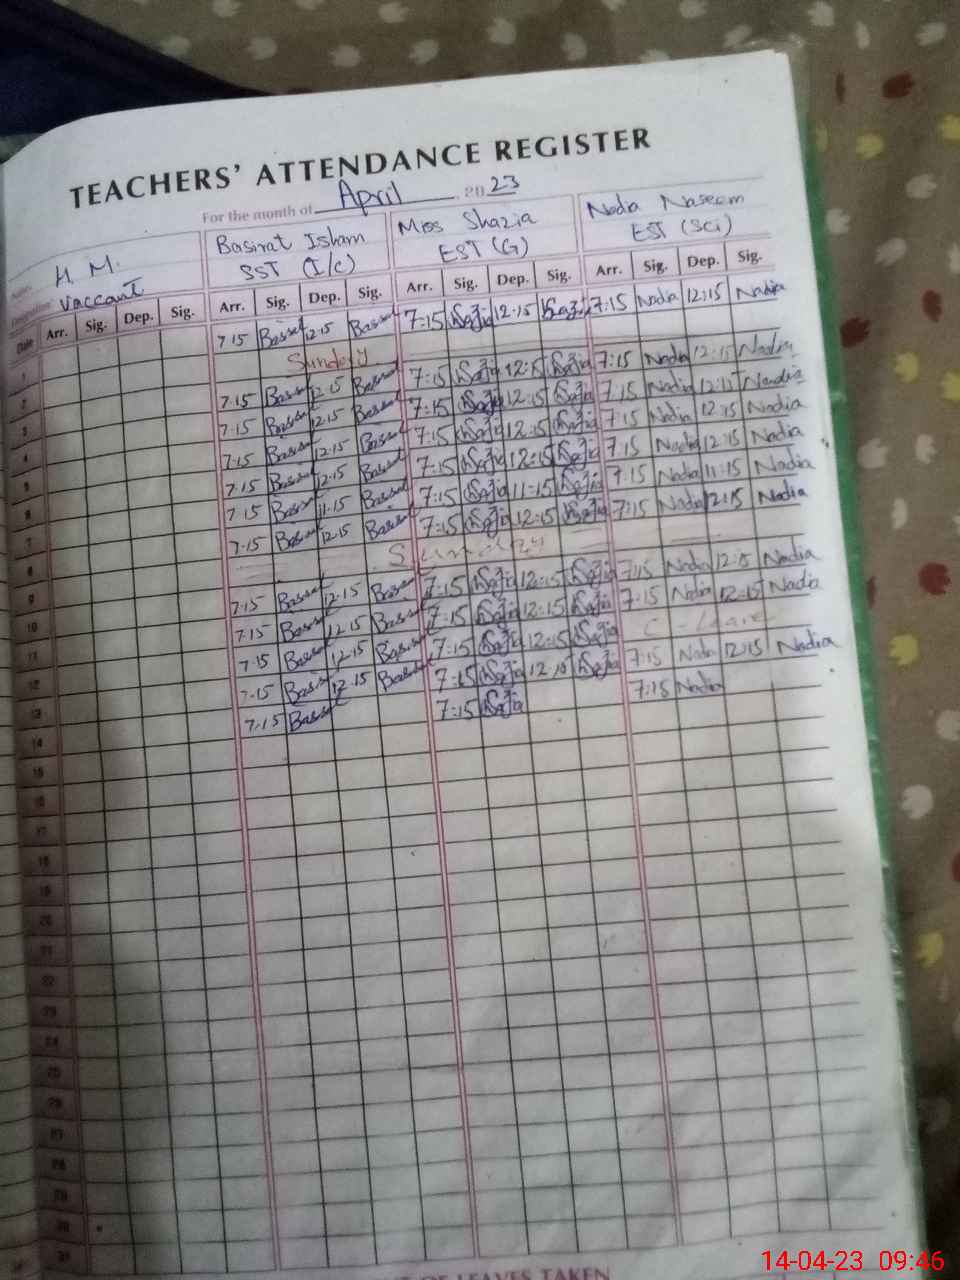 TEACHERS' ATTENDANCE REGISTER
For the month of April 2023
H. M. Basirat Isham Miss Shazia Nadia Naseem
Vaccant SST (I/c) EST (G) EST (Sci)
Date Arr. Sig. Dep. Sig. Arr. Sig. Dep. Sig. Arr. Sig. Dep. Sig. Arr. Sig. Dep. Sig.
1 7.15 12.15 7:15 12:15 7:15 Nadia 12:15 Nadia
2 Sunday
3 7.15 12.15 7:15 12:15 7:15 Nadia 12:15 Nadia
4 7.15 12.15 7:15 12:15 7:15 Nadia 12:15 Nandia
5 7.15 12.15 7:15 12:15 7:15 Nadia 12:15 Nadia
6 7.15 12.15 7:15 12:15 7:15 Nadia 12:15 Nadia
7 7.15 11.15 7:15 11:15 7:15 Nadia 11:15 Nadia
8 7.15 12.15 7:15 12:15 7:15 Nadia 12:15 Nadia
9 Sunday
10 7.15 12.15 7:15 12:15 7:15 Nadia 12:15 Nadia
11 7.15 12.15 7:15 12:15 7:15 Nadia 12:15 Nadia
12 7.15 12.15 7:15 12:15 C-Leave
13 7.15 12.15 7:15 12:15 7:15 Nadia 12:15 Nadia
14 7.15 7:15 7:15 Nadia
15
16
17
18
19
20
21
22
23
24
25
26
27
28
29
30
31
OF LEAVES TAKEN
14-04-23 09:46